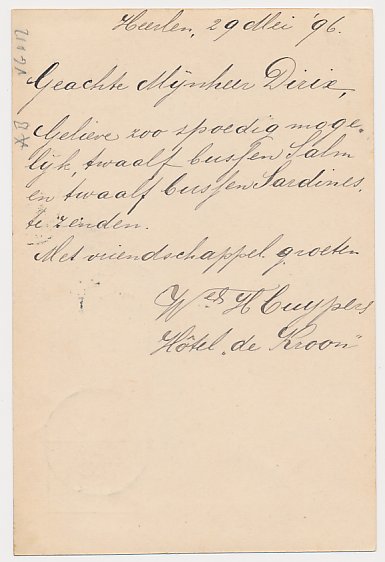 Heerlen, 29 Mei '96.
Geachte Mijnheer Dirix,
Gelieve zoo spoedig moge-
lijk, twaalf bussen Salm
en twaalf bussen Sardines.
te zenden.
Met vriendschappel groeten
Wed H Cuypers
Hôtel „de Kroon"